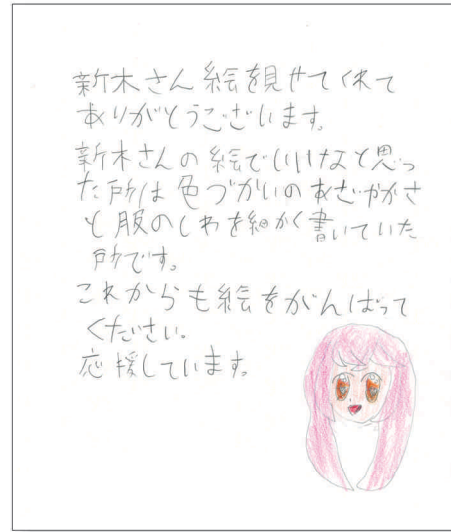 新木さん絵を見せてくれて
ありがとうございます。
新木さんの絵でいいなと思っ
た所は色づかいのあざやかさ
と服のしわを細かく書いていた
所です。
これからも絵をがんばって
ください。
応援しています。